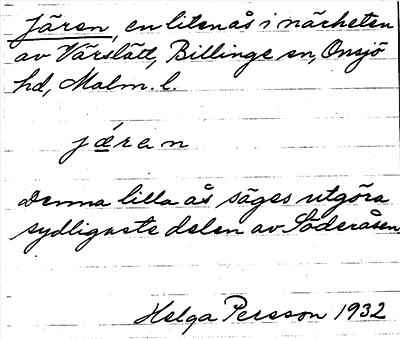 Jären, en liten ås i närheten
av Värslätt, Billinge sn, Onsjö
hd, Malm. l.
järan
Denna lilla ås säges utgöra
sydligaste delen av Söderåsen.
Helga Persson 1932